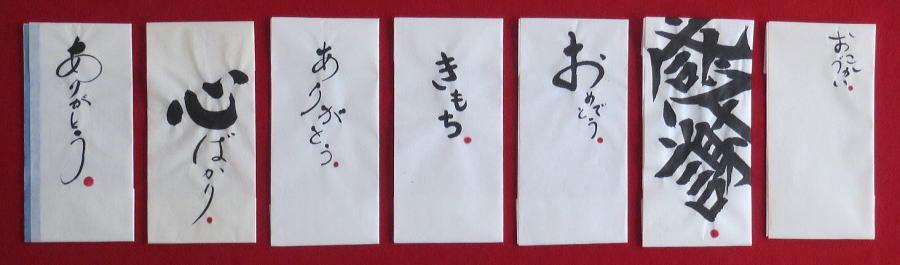 ありがとう
心ばかり
ありがとう
きもち
おめでとう
おこづかい